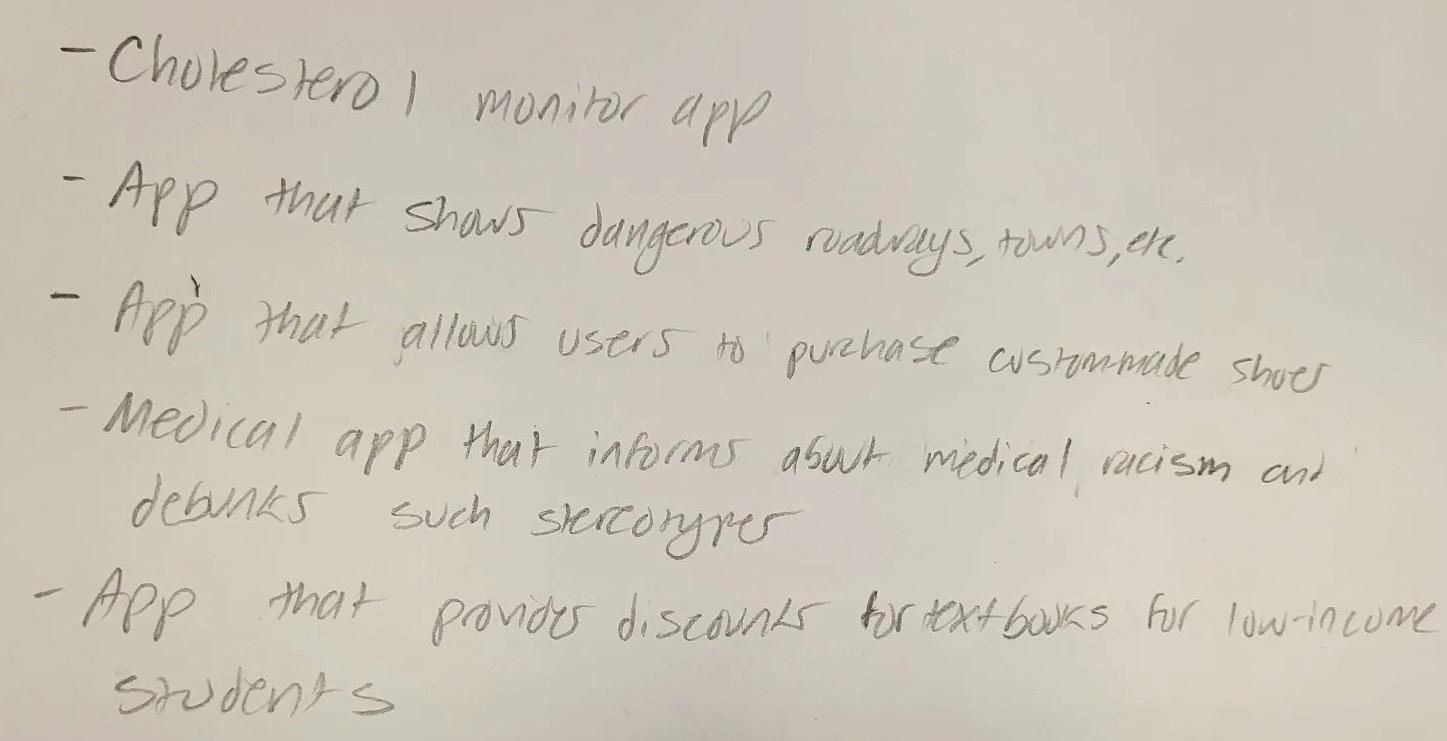 - Cholesterol monitor app
- App that shows dangerous roadways, towns, etc.
- App that allows users to purchase custom-made shoes
- Medical app that informs about medical racism and
debunks such stereotypes
- App that provides discounts for textbooks for low-income
students